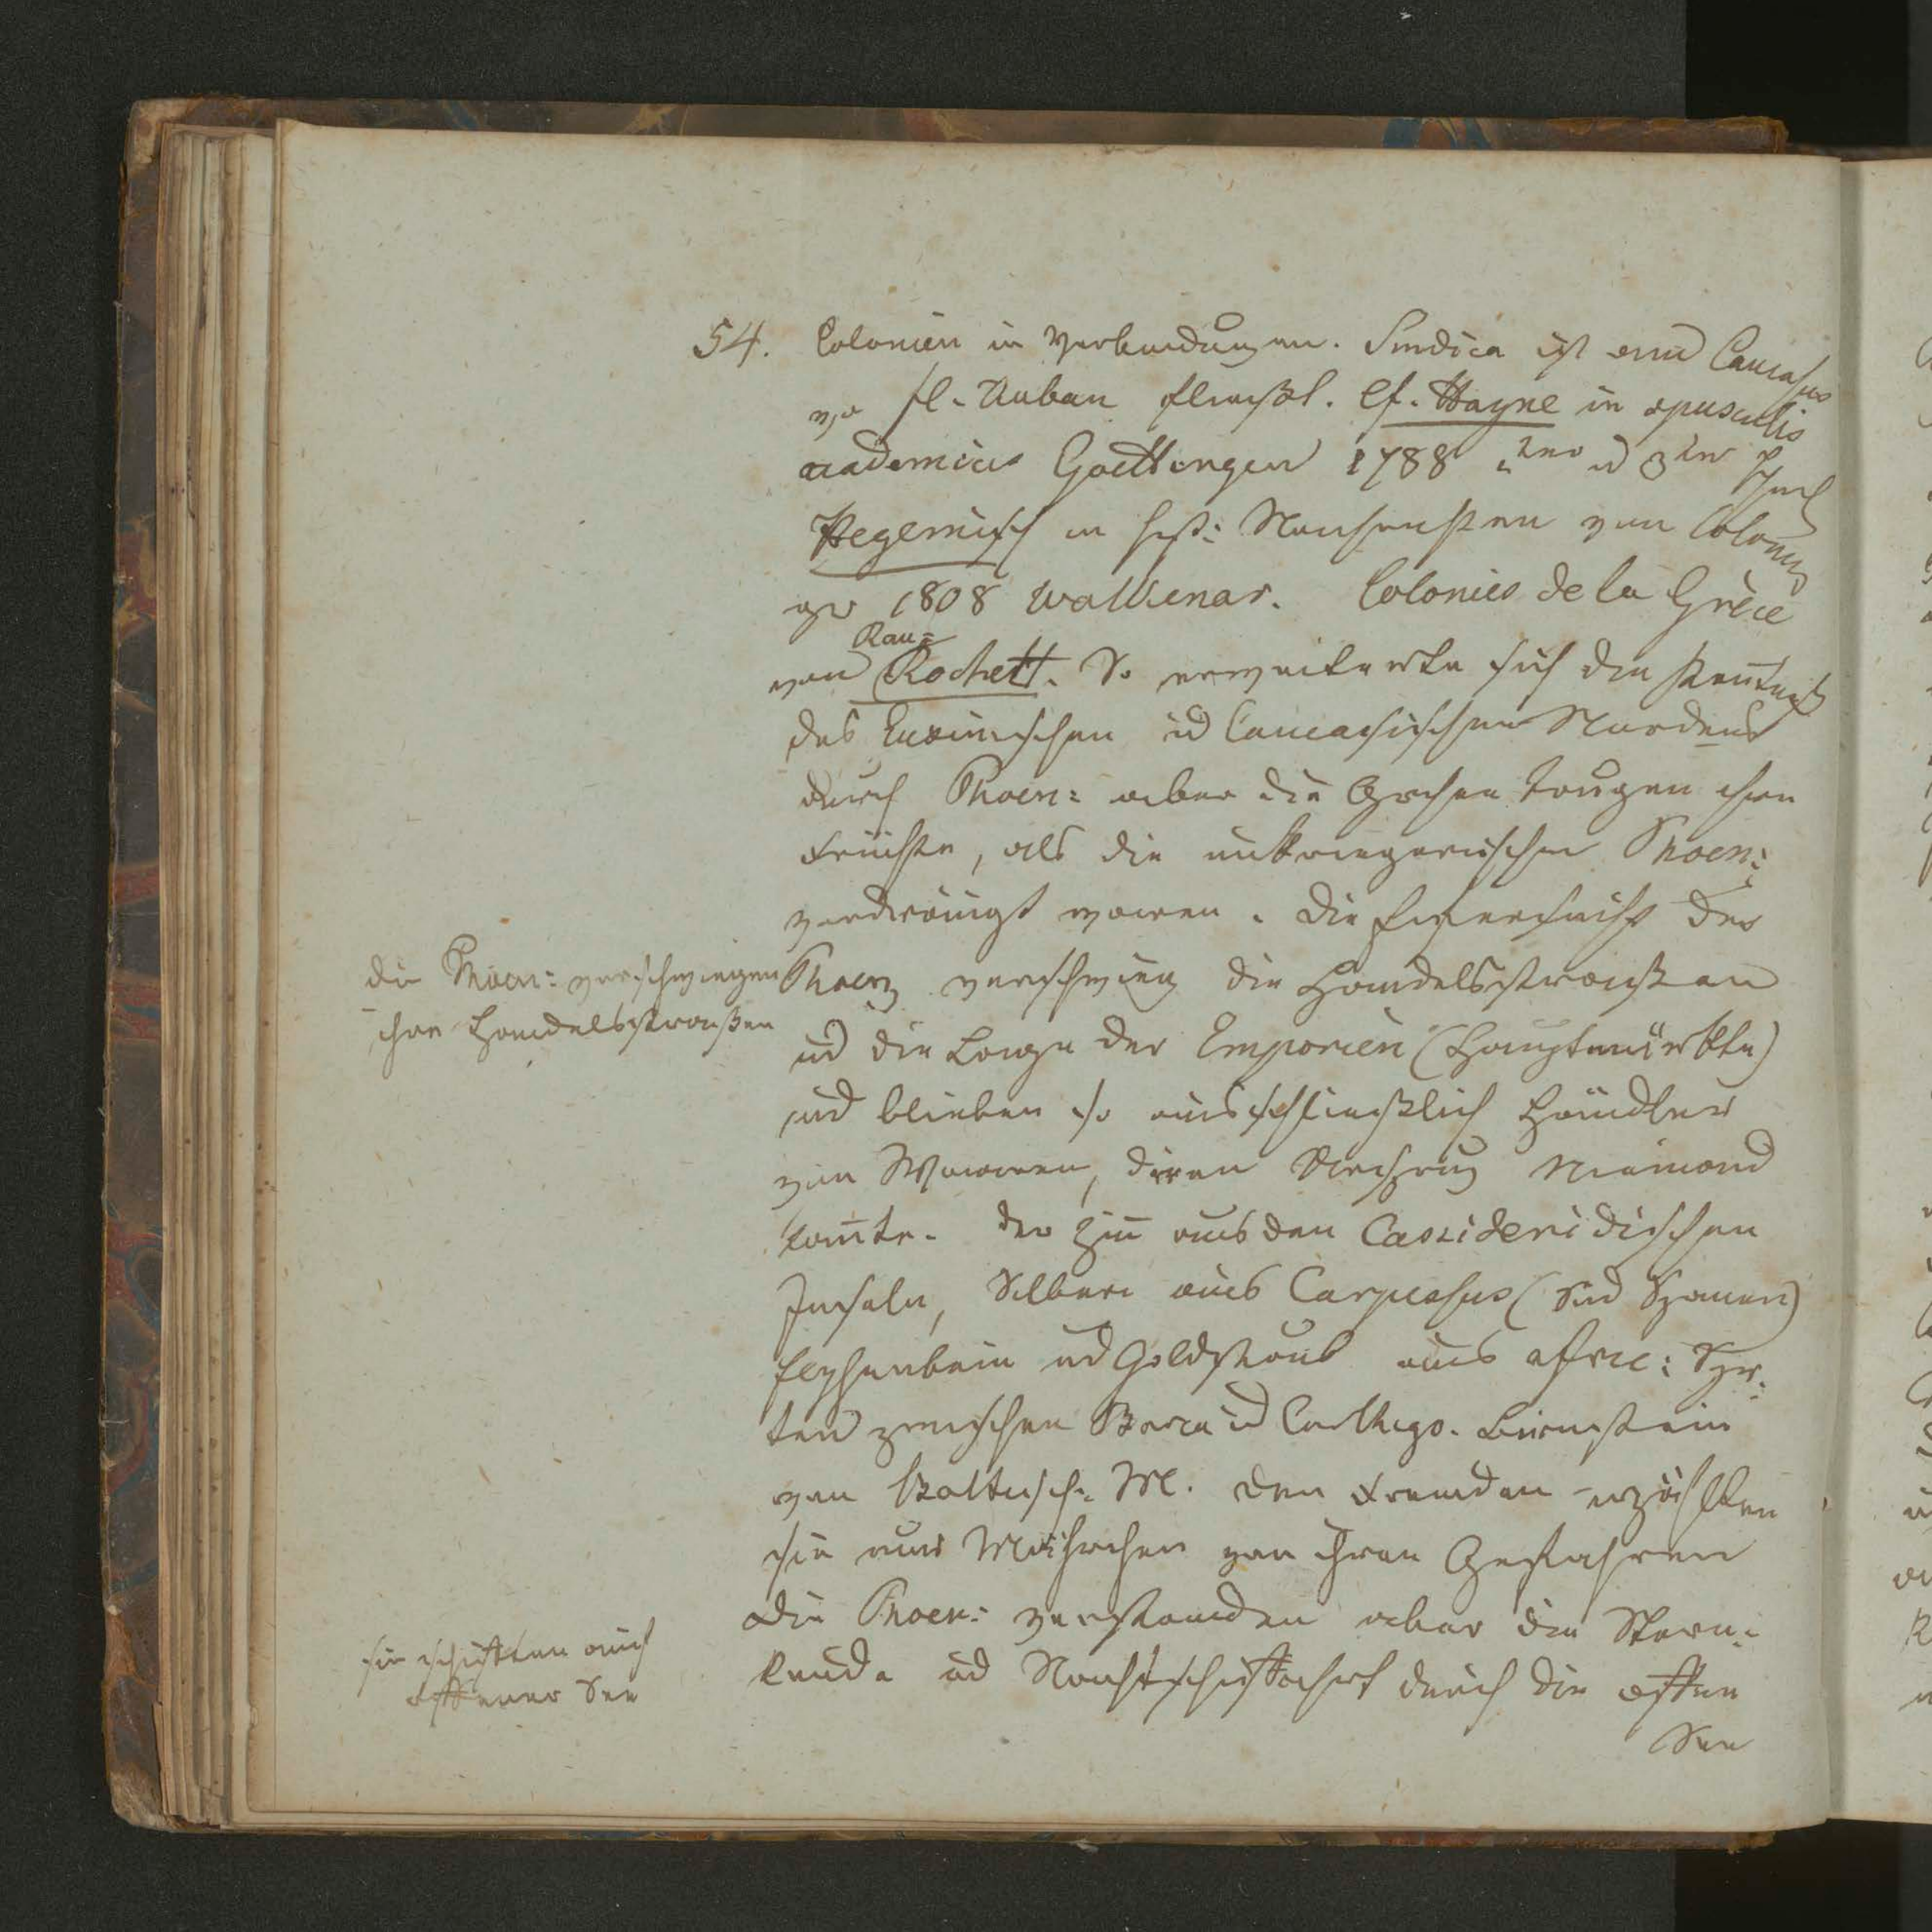 54. Colonien in Verbindungen. Sindica ist am Caucasus
wo fl. Kuban fließt. cf. Hayne in opusculis
academicis Goettingen 1788 2ter u 3ter Theil
Hegewisch in hist: Nachrichten von Colonien
1808 Walkenar. Colonies de la Grèce
Rau=
von Rochett. So erweiterte sich die Kentniß
des Euxinischen ud Caucasischen Nordens
durch Phoen: aber die Grchen trugen ihre
Früchte, als die unkriegerischen Phoen:
verdrängt waren. Die Eifersucht der
die Phoen: verschwiegen
ihre Handelsstraßen
Phoen verschwieg die Handelsstraßen
ud die Lage der Emporien (Hauptmärkte)
ud blieben so ausschließlich Händler
von Waaren, deren Niemand
konte. der Zin aus den Cassideridischen
Inseln, Silber aus (Süd Spanien)
Elphenbein ud Goldstaub aus afric: Syr:
ten zwischen Barca ud Carthago. Bernstein
vom Baltisch. M. den Fremden erzählten
sie nur Mährchen von ihren Gefahren
die Phoen: verstanden aber die Stern:
kunde ud Nachtschiffahrt durch die offne
sie schifften auf
offener See
See